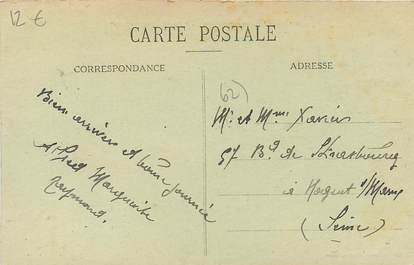 12 €
CARTE POSTALE
CORRESPONDANCE
ADRESSE
(62)
Bien arrivés et bonne journée
Alfred Marguerite
Raymond.
M. et Mme Xavier
57 Bd de Strasbourg
à Nogent s/Marne
(Seine)